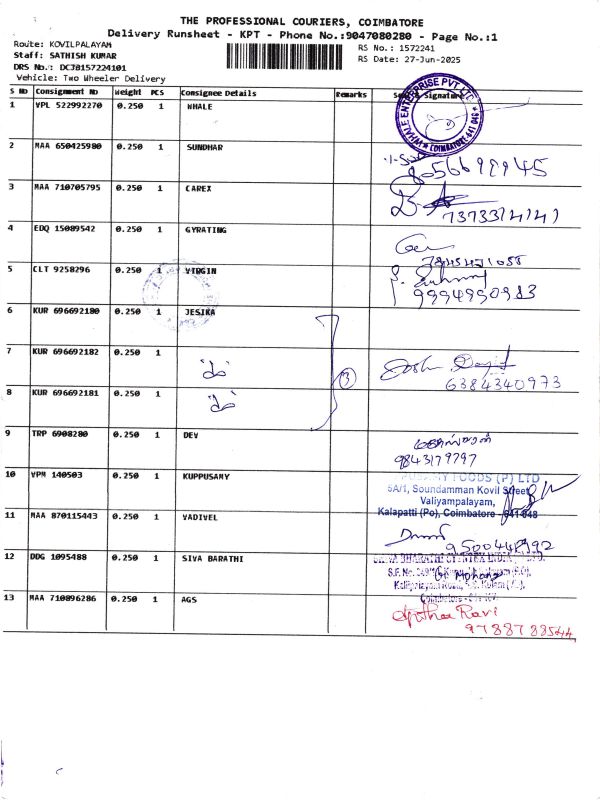 THE PROFESSIONAL COURIERS, COIMBATORE
Delivery Runsheet - KPT - Phone No.:9047080280 - Page No.:1
Route: KOVILPALAYAM
RS No.: 1572241
Staff: SATHISH KUMAR
RS Date: 27-Jun-2025
DRS No.: DCJ8157224101
Vehicle: Two Wheeler Delivery
S No Consignment No Weight PCS Consignee Details Remarks Signature
1 VPL 522992270 0.250 1 WHALE
WHALE ENTERPRISE PVT LTD * COIMBATORE-641 046 *
2 MAA 650425980 0.250 1 SUNDHAR
3 MAA 710705795 0.250 1 CAREX
7373314141
4 EDQ 15089542 0.250 1 GYRATING
5 CLT 9258296 0.250 1 VIRGIN
9994990983
6 KUR 696692180 0.250 1 JESIKA
7 KUR 696692182 0.250 1
3
6384340973
8 KUR 696692181 0.250 1
9 TRP 6908280 0.250 1 DEV
9843179797
10 VPM 140503 0.250 1 KUPPUSAMY
FOODS (P) LTD
5A/1, Soundamman Kovil Street
Valiyampalayam,
Kalapatti (Po), Coimbatore - 641 048
11 MAA 870115443 0.250 1 VADIVEL
12 DDG 1095488 0.250 1 SIVA BARATHI
13 MAA 710896286 0.250 1 AGS
Ravi
9788788544